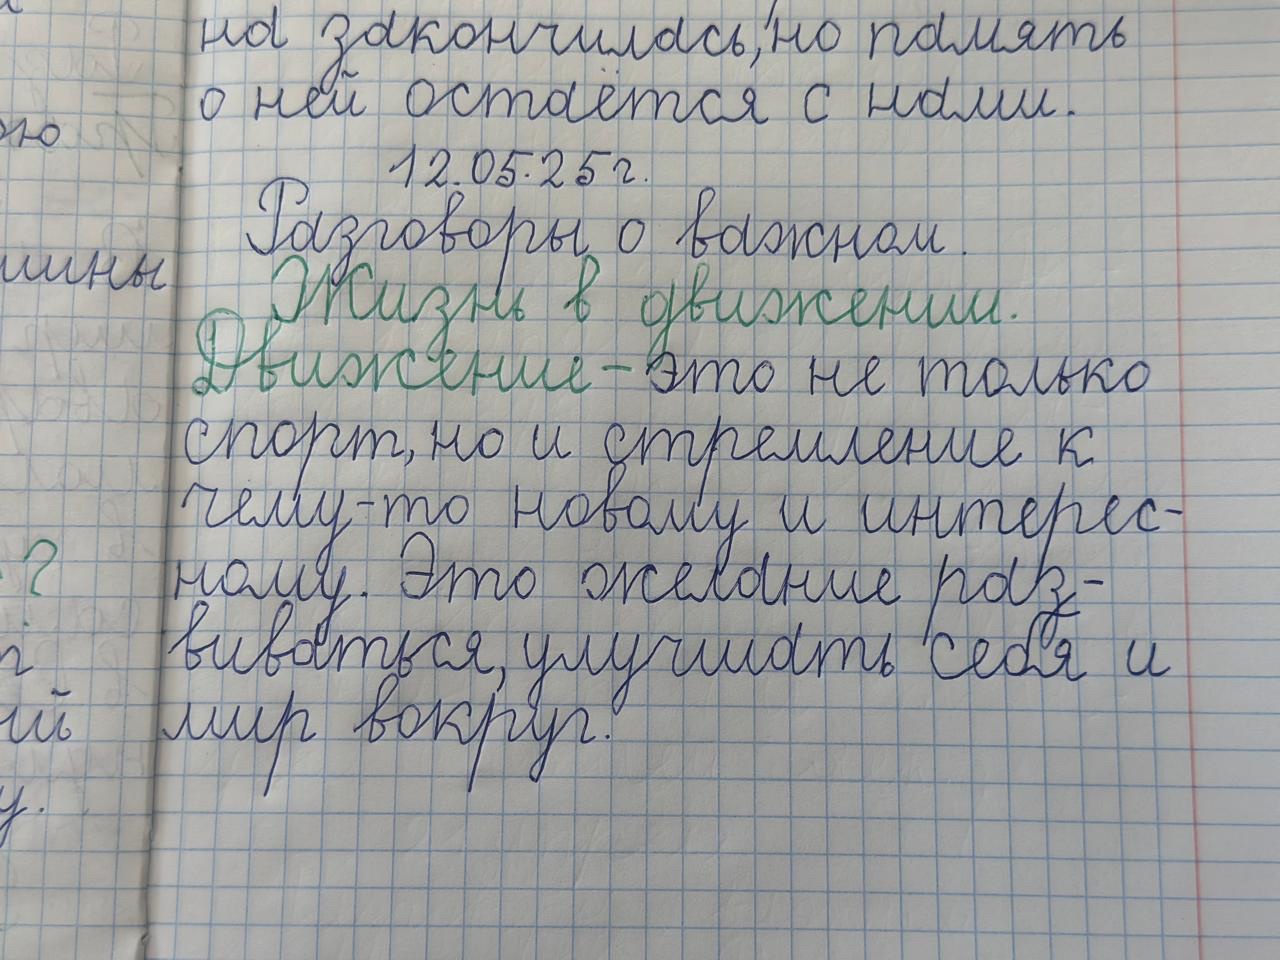 на закончилась, но память
о ней остаётся с нами.
12.05.25г.
Разговоры о важном.
Жизнь в движении.
Движение - это не только
спорт, но и стремление к
чему-то новому и интерес-
ному. Это желание раз-
виваться, улучшать себя и
мир вокруг.